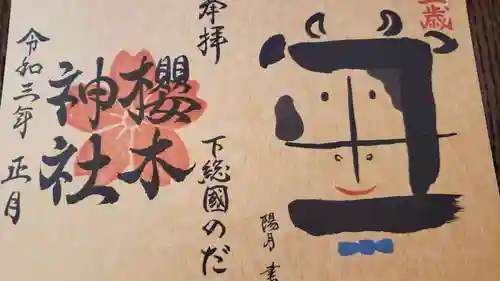 歳
奉拝
下総國のだ
櫻木
神社
令和三年 正月
丑
陽月 書